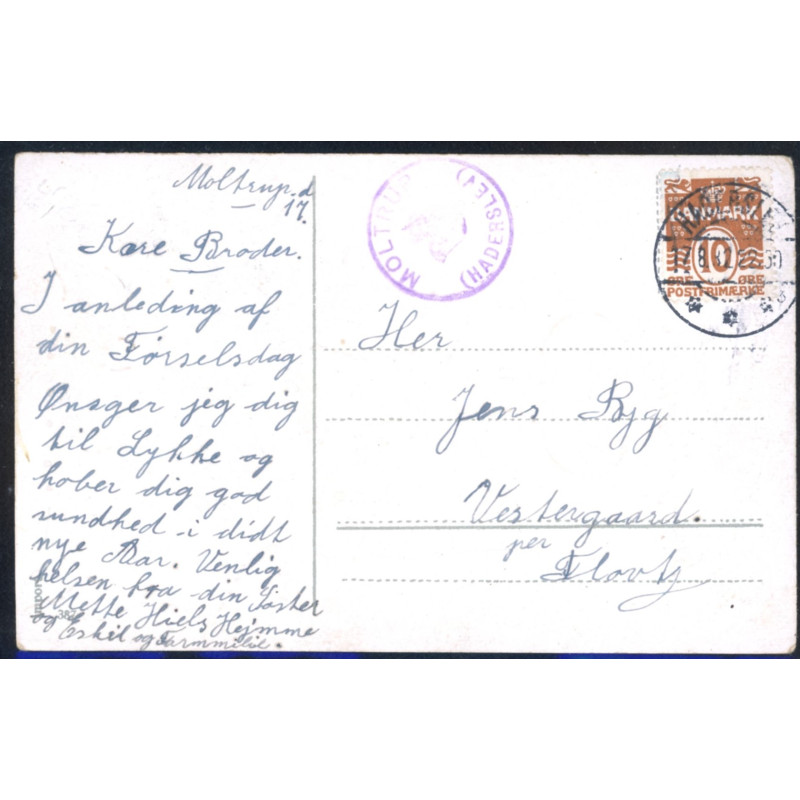 Moltrup. d
17.
Kære Broder.
I anleding af
din Førselsdag
Ønsger jeg dig
til Lykke og
hober dig god
sundhed i didt
nye Aar. Venlig
helsen fra din Søster
Mette Hiels Hejmme
og Eskil og Farmmilie.
MOLTRUP
(HADERSLEV)
HADERSLEV
17.8.32
DANMARK
10
ØRE ØRE
POSTFRIMÆRKE
Her
Jens Byg
Vestergaard.
per
Flovtz
Import
387